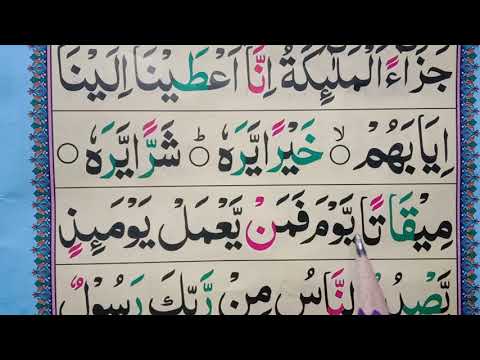 جَزَآءً الْمَلٰٓئِكَةُ اِنَّآ اَعْطَيْنَا اِلَيْنَا
اِيَابَهُمْ ۙ خَيْرًا يَّرَهٗ ؕ شَرًّا يَّرَهٗ
مِيْقَاتًا يَّوْمَ فَمَنْ يَّعْمَلْ يَوْمَئِذٍ
يَّصْدُ النَّاسُ مِنْ رَّبِّكَ رَسُوْلٌ